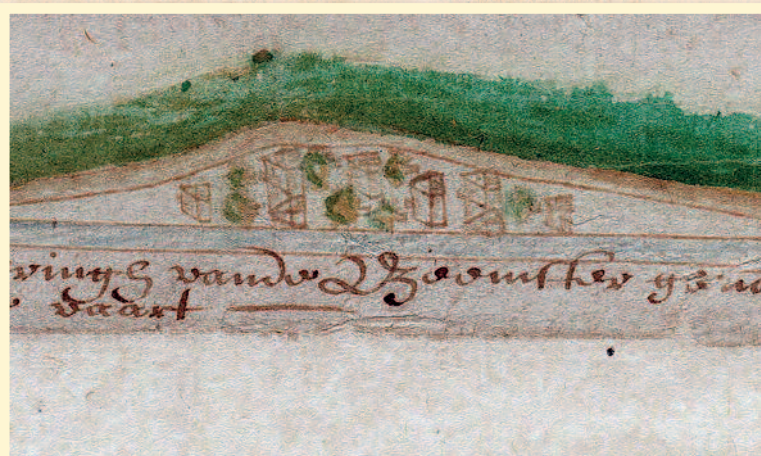 ringh vande Beemster gen
vaart